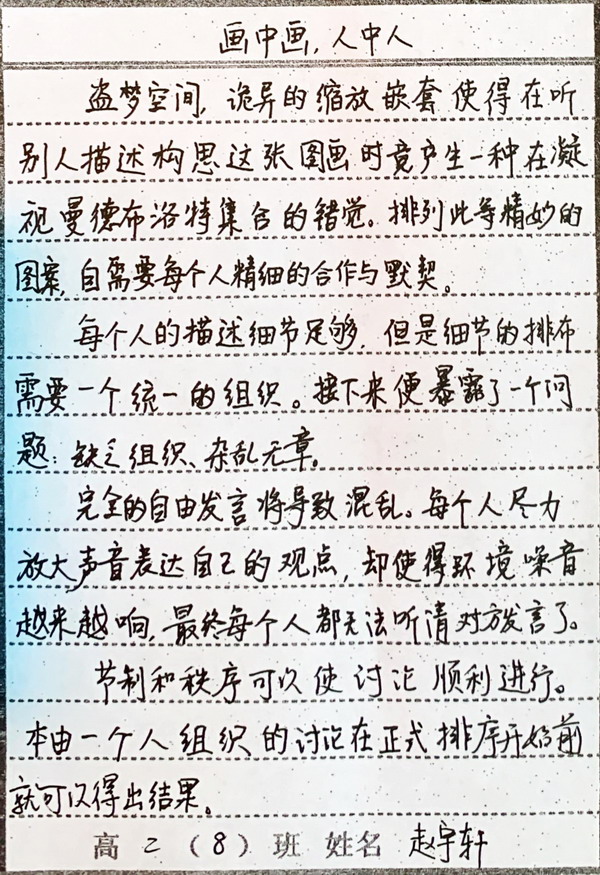 画中画,人中人
盗梦空间,诡异的缩放嵌套使得在听
别人描述构思这张图画时竟产生一种在凝
视曼德布洛特集合的错觉。排列此等精妙的
图案,自需要每个人精细的合作与默契。
每个人的描述细节足够,但是细节的排布
需要一个统一的组织。接下来便暴露了一个问
题:缺乏组织、杂乱无章。
完全的自由发言将导致混乱。每个人尽力
放大声音表达自己的观点,却使得环境噪音
越来越响,最终每个人都无法听清对方发言了。
节制和秩序可以使讨论顺利进行。
本由一个人组织的讨论在正式排序开始前
就可以得出结果。
高二(8)班 姓名 赵宇轩